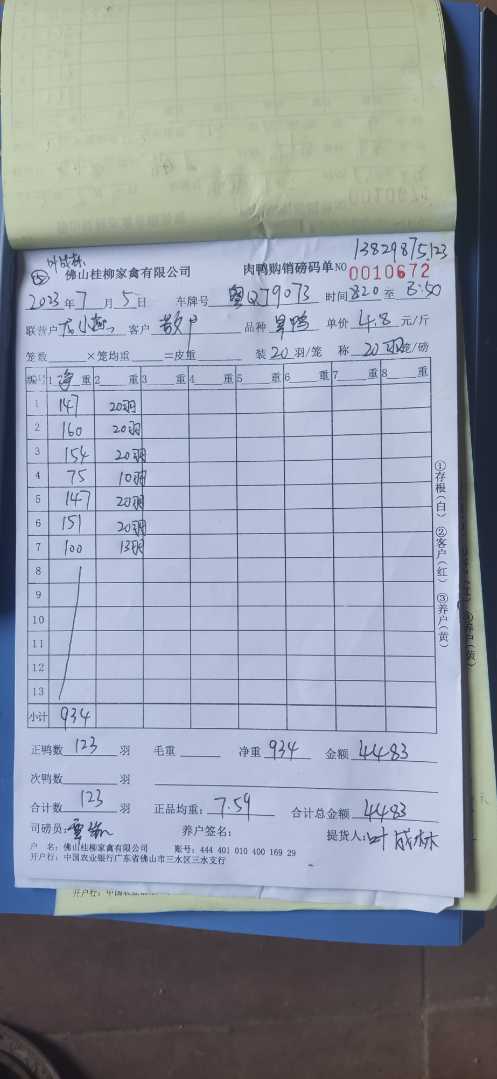 13829875123
佛山桂柳家禽有限公司 肉鸭购销磅码单NO 0010672
2023年7月5日 车牌号 粤Q79073 时间 820 至 8:50
联营户 客户 散户 品种 旱鸭 单价 4.8 元/斤
笼数 ×笼均重 =皮重 装 20 羽/笼 称 20羽 /磅
编号 1 净 重 2 重 3 重 4 重 5 重 6 重 7 重 8 重
1 147 20羽
2 160 20羽
3 154 20羽
4 75 10羽
5 147 20羽
6 151 20羽
7 100 13羽
8
9
10
11
12
13
小计 934
正鸭数 123 羽 毛重 净重 934 金额 4483
次鸭数 羽
合计数 123 羽 正品均重: 7.59 合计总金额 4483
司磅员: 养户签名: 提货人: 叶成林
户 名: 佛山桂柳家禽有限公司 账号: 444 401 010 400 169 29
开户行: 中国农业银行广东省佛山市三水区三水支行
①存根(白) ②客户(红) ③养户(黄)